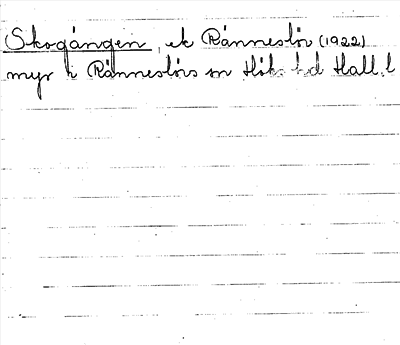 Skogången, ek Ränneslöv (1922)
myr i Ränneslövs sn Höks hd Hall. l